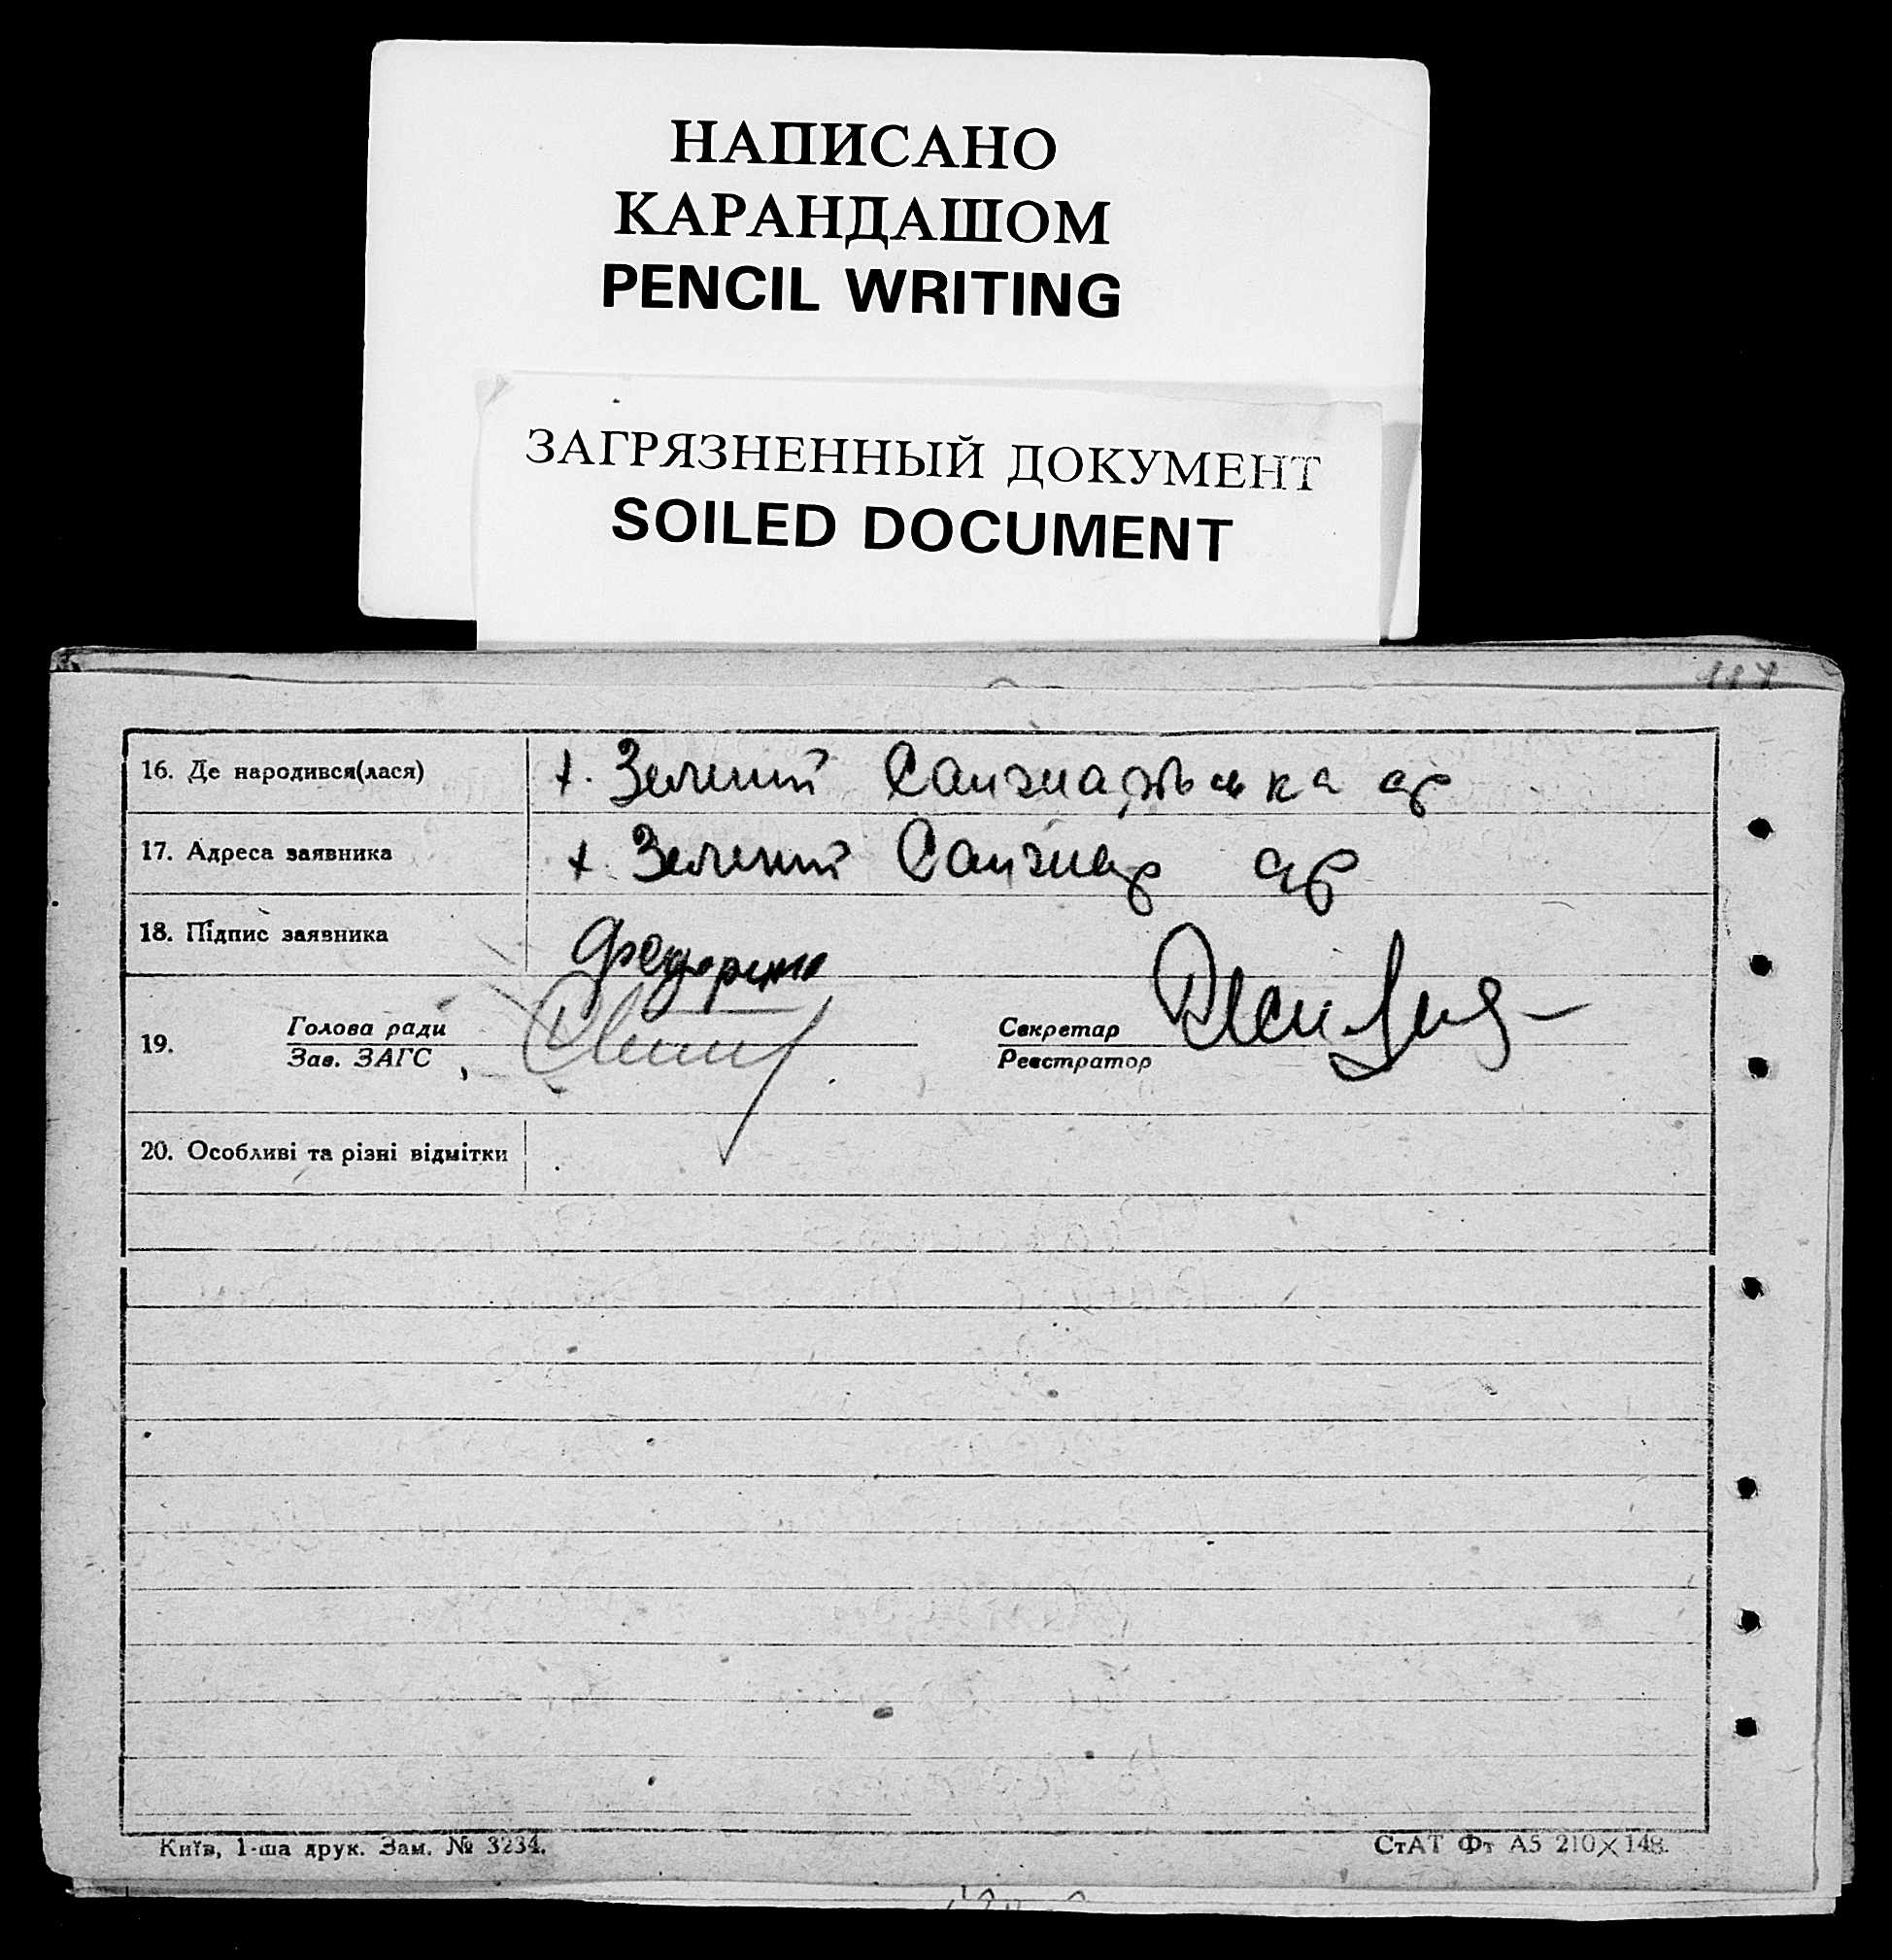 НАПИСАНО
КАРАНДАШОМ
PENCIL WRITING
ЗАГРЯЗНЕННЫЙ ДОКУМЕНТ
SOILED DOCUMENT
16. Де народився(лася) х. Зелений
17. Адреса заявника х. Зелений
18. Підпис заявника
19. Голова ради Секретар
Зав. ЗАГС Реєстратор
20. Особливі та різні відмітки
Київ, 1-ша друк. Зам. № 3234. СтАТ Фт А5 210×148.